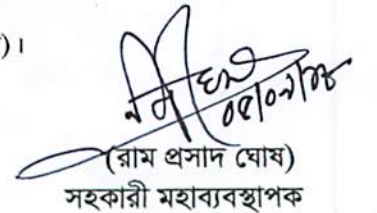 )।
(রাম প্রসাদ ঘোষ)
সহকারী মহাব্যবস্থাপক